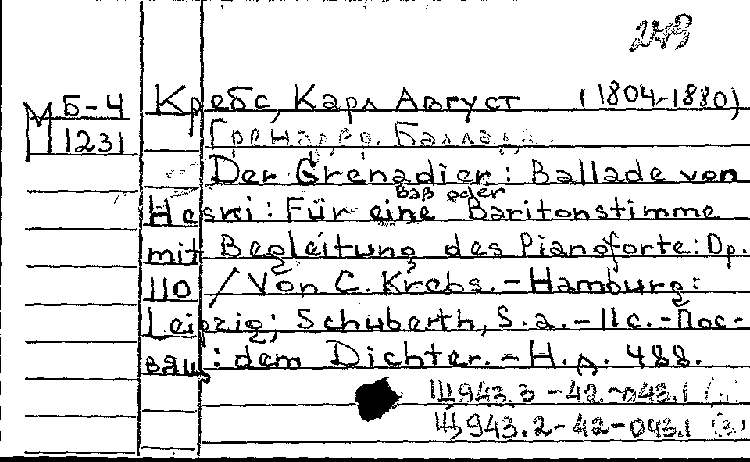 249
М Б-4 Кребс, Карл Август (1804-1880)
1231 Гренадер. Баллада.
Der Grenadier: Ballade von
Baß oder
Heski: Für eine Baritonstimme
mit Begleitung des Pianoforte: Op.
110 / Von C. Krebs. - Hamburg:
Leipzig; Schuberth, S.a. - 11c. - Пос-
вящ: dem Dichter. - Н.д. 488.
Щ943.3-42-043.1
Щ943.2-42-043.1